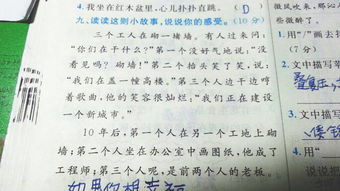 4.我坐在红木盆里,心儿扑扑直跳。 ( D )
九、读读这则小故事,说说你的感受。(10分)
三个工人在砌一堵墙。有人过来问:
“你们在干什么?”第一个没好气地说:“没
看见吗?砌墙!”第二个抬头笑了笑,说:
“我们在盖一幢高楼。”第三个人边干边哼
着歌曲,他的笑容很灿烂:“我们正在建设
一个新城市。”
10年后,第一个人在另一个工地上砌
墙;第二个人坐在办公室中画图纸,他成了
工程师;第三个人呢,是前两个人的老板。
如果你想幸福
微风吹来,那沁
些微醉了。
1.用“/”画去括
(7分)
2.文中描写草
3.文中描
4.用“
说说把